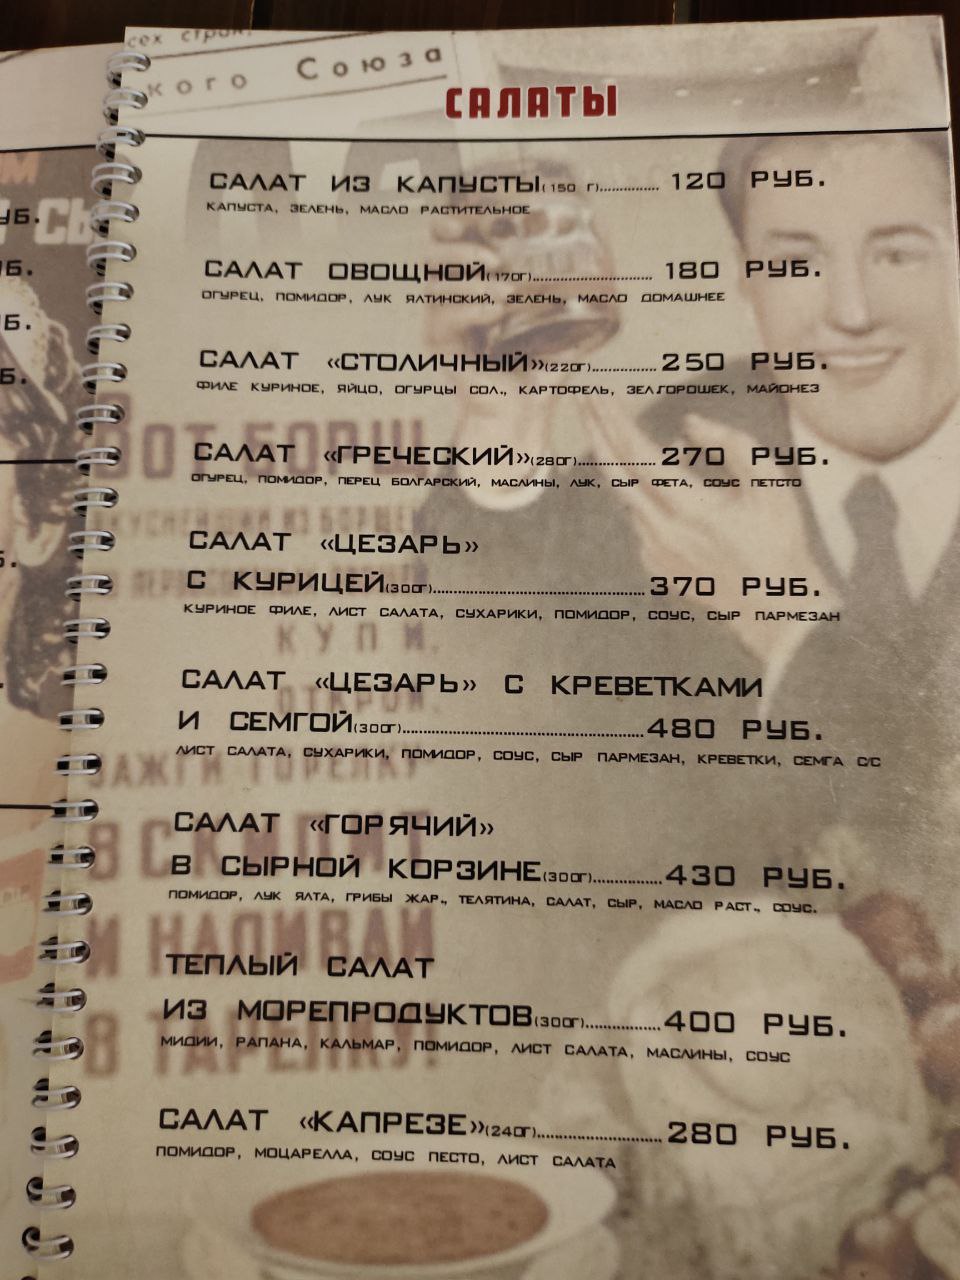 сех стран
кого Союза
САЛАТЫ
САЛАТ ИЗ КАПУСТЫ(150 Г)............... 120 РУБ.
КАПУСТА, ЗЕЛЕНЬ, МАСЛО РАСТИТЕЛЬНОЕ
САЛАТ ОВОЩНОЙ(170Г)............................. 180 РУБ.
ОГУРЕЦ, ПОМИДОР, ЛУК ЯЛТИНСКИЙ, ЗЕЛЕНЬ, МАСЛО ДОМАШНЕЕ
САЛАТ «СТОЛИЧНЫЙ»(220Г)................250 РУБ.
ФИЛЕ КУРИНОЕ, ЯЙЦО, ОГУРЦЫ СОЛ., КАРТОФЕЛЬ, ЗЕЛ.ГОРОШЕК, МАЙОНЕЗ
САЛАТ «ГРЕЧЕСКИЙ»(280Г)................... 270 РУБ.
ОГУРЕЦ, ПОМИДОР, ПЕРЕЦ БОЛГАРСКИЙ, МАСЛИНЫ, ЛУК, СЫР ФЕТА, СОУС ПЕТСТО
САЛАТ «ЦЕЗАРЬ»
С КУРИЦЕЙ(300Г)....................................................370 РУБ.
КУРИНОЕ ФИЛЕ, ЛИСТ САЛАТА, СУХАРИКИ, ПОМИДОР, СОУС, СЫР ПАРМЕЗАН
САЛАТ «ЦЕЗАРЬ» С КРЕВЕТКАМИ
И СЕМГОЙ(300Г).................................................................480 РУБ.
ЛИСТ САЛАТА, СУХАРИКИ, ПОМИДОР, СОУС, СЫР ПАРМЕЗАН, КРЕВЕТКИ, СЕМГА С/С
САЛАТ «ГОРЯЧИЙ»
В СЫРНОЙ КОРЗИНЕ(300Г).................430 РУБ.
ПОМИДОР, ЛУК ЯЛТА, ГРИБЫ ЖАР., ТЕЛЯТИНА, САЛАТ, СЫР, МАСЛО РАСТ., СОУС.
ТЕПЛЫЙ САЛАТ
ИЗ МОРЕПРОДУКТОВ(300Г)..................400 РУБ.
МИДИИ, РАПАНА, КАЛЬМАР, ПОМИДОР, ЛИСТ САЛАТА, МАСЛИНЫ, СОУС
САЛАТ «КАПРЕЗЕ»(240Г)...............................280 РУБ.
ПОМИДОР, МОЦАРЕЛЛА, СОУС ПЕСТО, ЛИСТ САЛАТА
ВОТ БОРЩ
КУПИ,
ОТКРОЙ,
ЗАЖГИ ГОРЕЛКУ
И НАЛИВАЙ
В ТАРЕЛКУ.